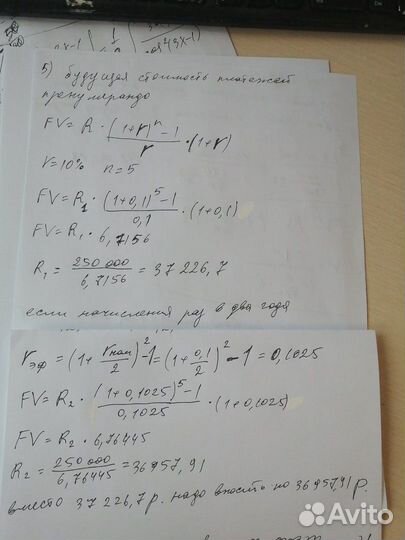 5) будущая стоимость платежей
пренумерандо
FV = R · ((1+r)^n − 1)/r · (1+r)
r = 10% n = 5
FV = R₁ · ((1+0,1)^5 − 1)/0,1 · (1+0,1)
FV = R₁ · 6,7156
R₁ = 250 000/6,7156 = 37 226,7
если начисления раз в два года
r эф = (1 + r ном/2)² − 1 = (1 + 0,1/2)² − 1 = 0,1025
FV = R₂ · ((1+0,1025)^5 − 1)/0,1025 · (1+0,1025)
FV = R₂ · 6,76445
R₂ = 250 000/6,76445 = 36957,91
вместо 37 226,7 р. надо вносить по 36957,91 р.
Avito